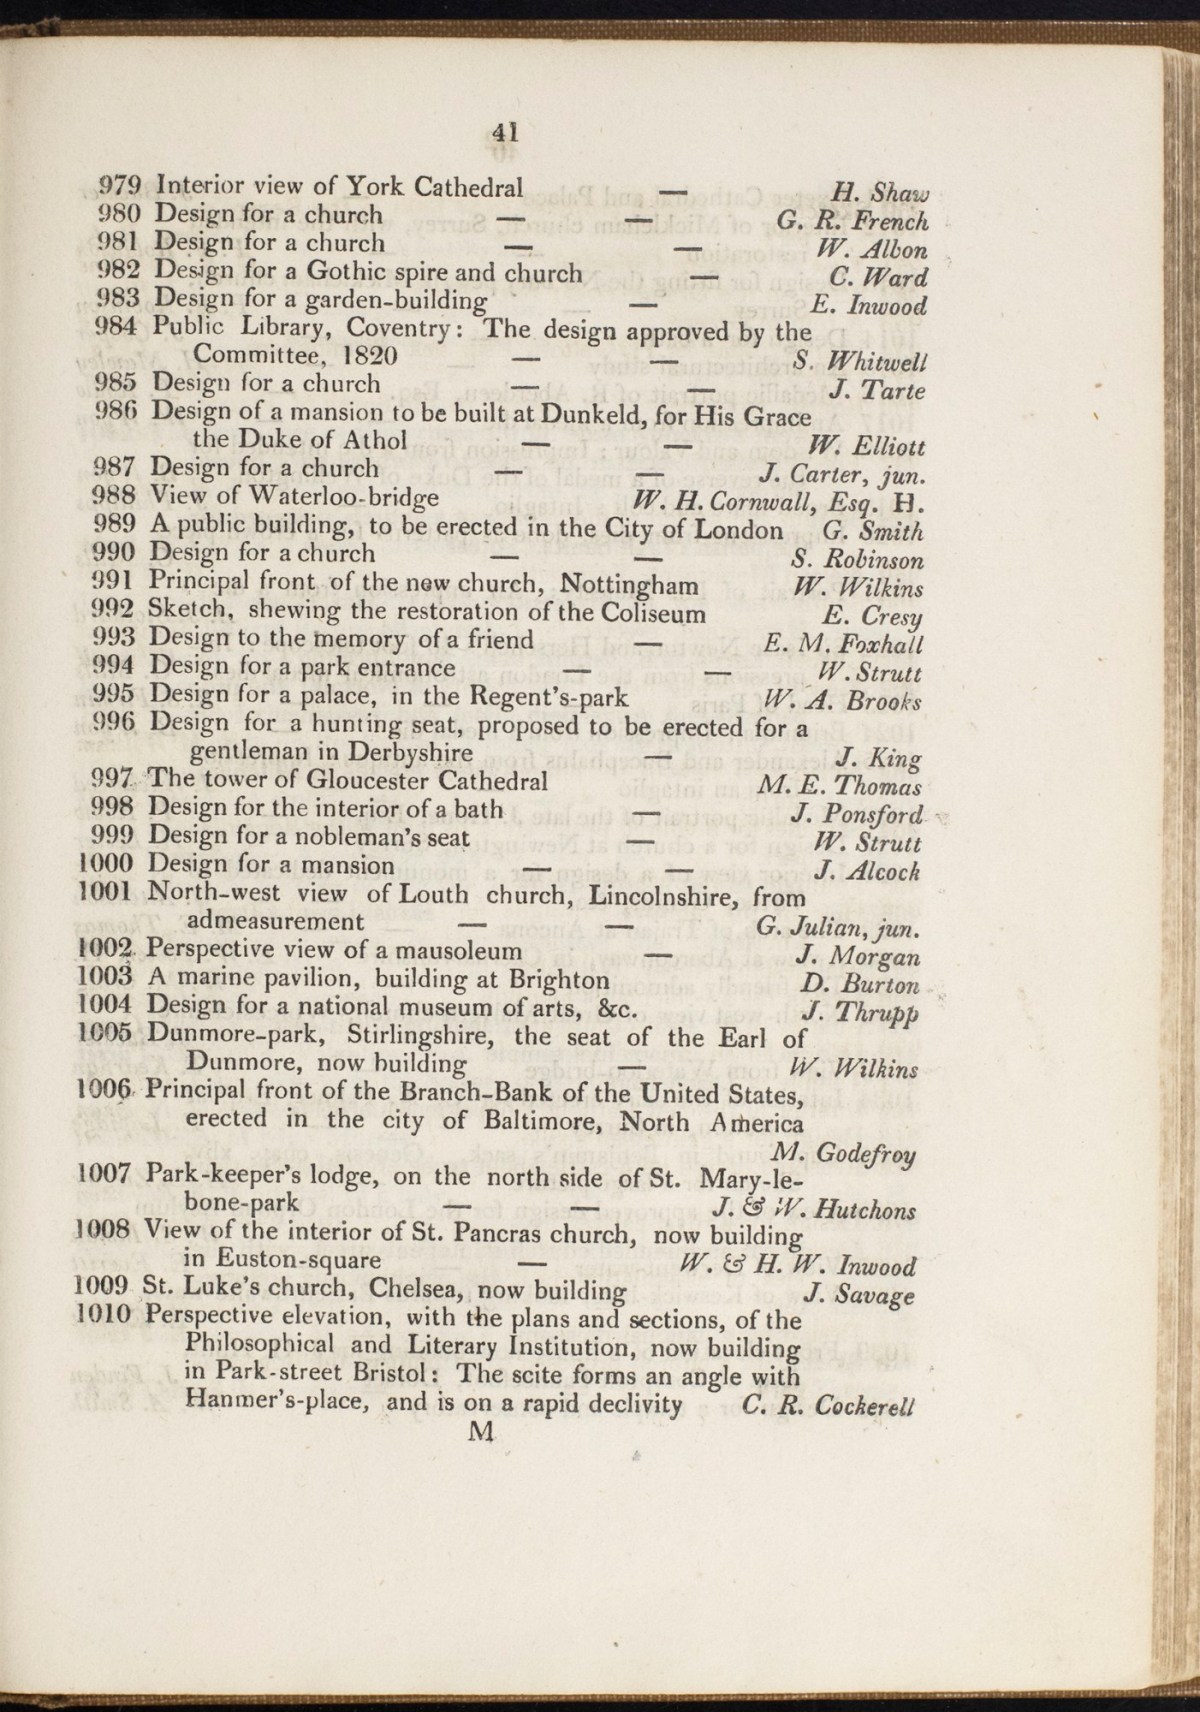 41
979 Interior view of York Cathedral — H. Shaw
980 Design for a church — — G. R. French
981 Design for a church — — W. Albon
982 Design for a Gothic spire and church — C. Ward
983 Design for a garden-building — E. Inwood
984 Public Library, Coventry: The design approved by the
Committee, 1820 — — S. Whitwell
985 Design for a church — — J. Tarte
986 Design of a mansion to be built at Dunkeld, for His Grace
the Duke of Athol — — W. Elliott
987 Design for a church — — J. Carter, jun.
988 View of Waterloo-bridge W. H. Cornwall, Esq. H.
989 A public building, to be erected in the City of London G. Smith
990 Design for a church — — S. Robinson
991 Principal front of the new church, Nottingham W. Wilkins
992 Sketch, shewing the restoration of the Coliseum E. Cresy
993 Design to the memory of a friend — E. M. Foxhall
994 Design for a park entrance — — W. Strutt
995 Design for a palace, in the Regent's-park W. A. Brooks
996 Design for a hunting seat, proposed to be erected for a
gentleman in Derbyshire — J. King
997 The tower of Gloucester Cathedral M. E. Thomas
998 Design for the interior of a bath — J. Ponsford
999 Design for a nobleman's seat — W. Strutt
1000 Design for a mansion — — J. Alcock
1001 North-west view of Louth church, Lincolnshire, from
admeasurement — — G. Julian, jun.
1002 Perspective view of a mausoleum — J. Morgan
1003 A marine pavilion, building at Brighton D. Burton
1004 Design for a national museum of arts, &c. J. Thrupp
1005 Dunmore-park, Stirlingshire, the seat of the Earl of
Dunmore, now building — W. Wilkins
1006 Principal front of the Branch-Bank of the United States,
erected in the city of Baltimore, North America
M. Godefroy
1007 Park-keeper's lodge, on the north side of St. Mary-le-
bone-park — — J. & W. Hutchons
1008 View of the interior of St. Pancras church, now building
in Euston-square — W. & H. W. Inwood
1009 St. Luke's church, Chelsea, now building J. Savage
1010 Perspective elevation, with the plans and sections, of the
Philosophical and Literary Institution, now building
in Park-street Bristol: The scite forms an angle with
Hanmer's-place, and is on a rapid declivity C. R. Cockerell
M